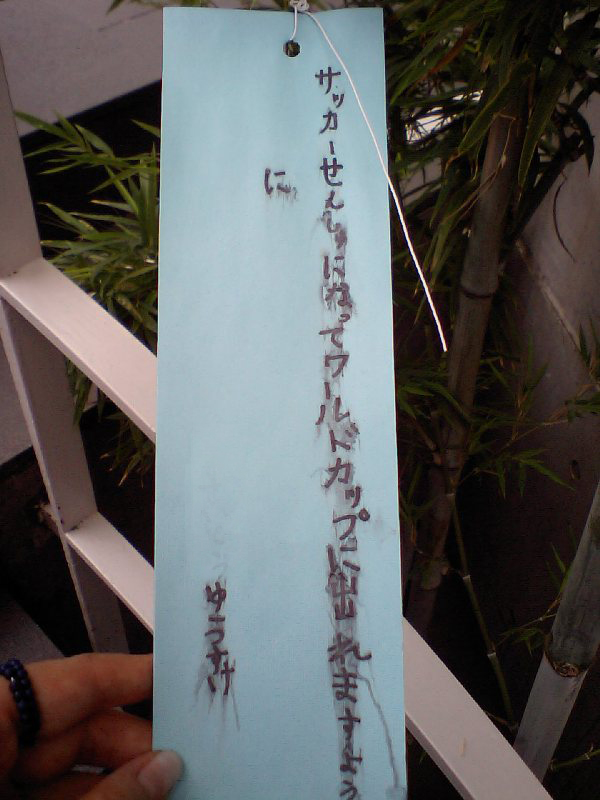 サッカーせんしゅになってワールドカップに出れますよう
に
ゆうすけ